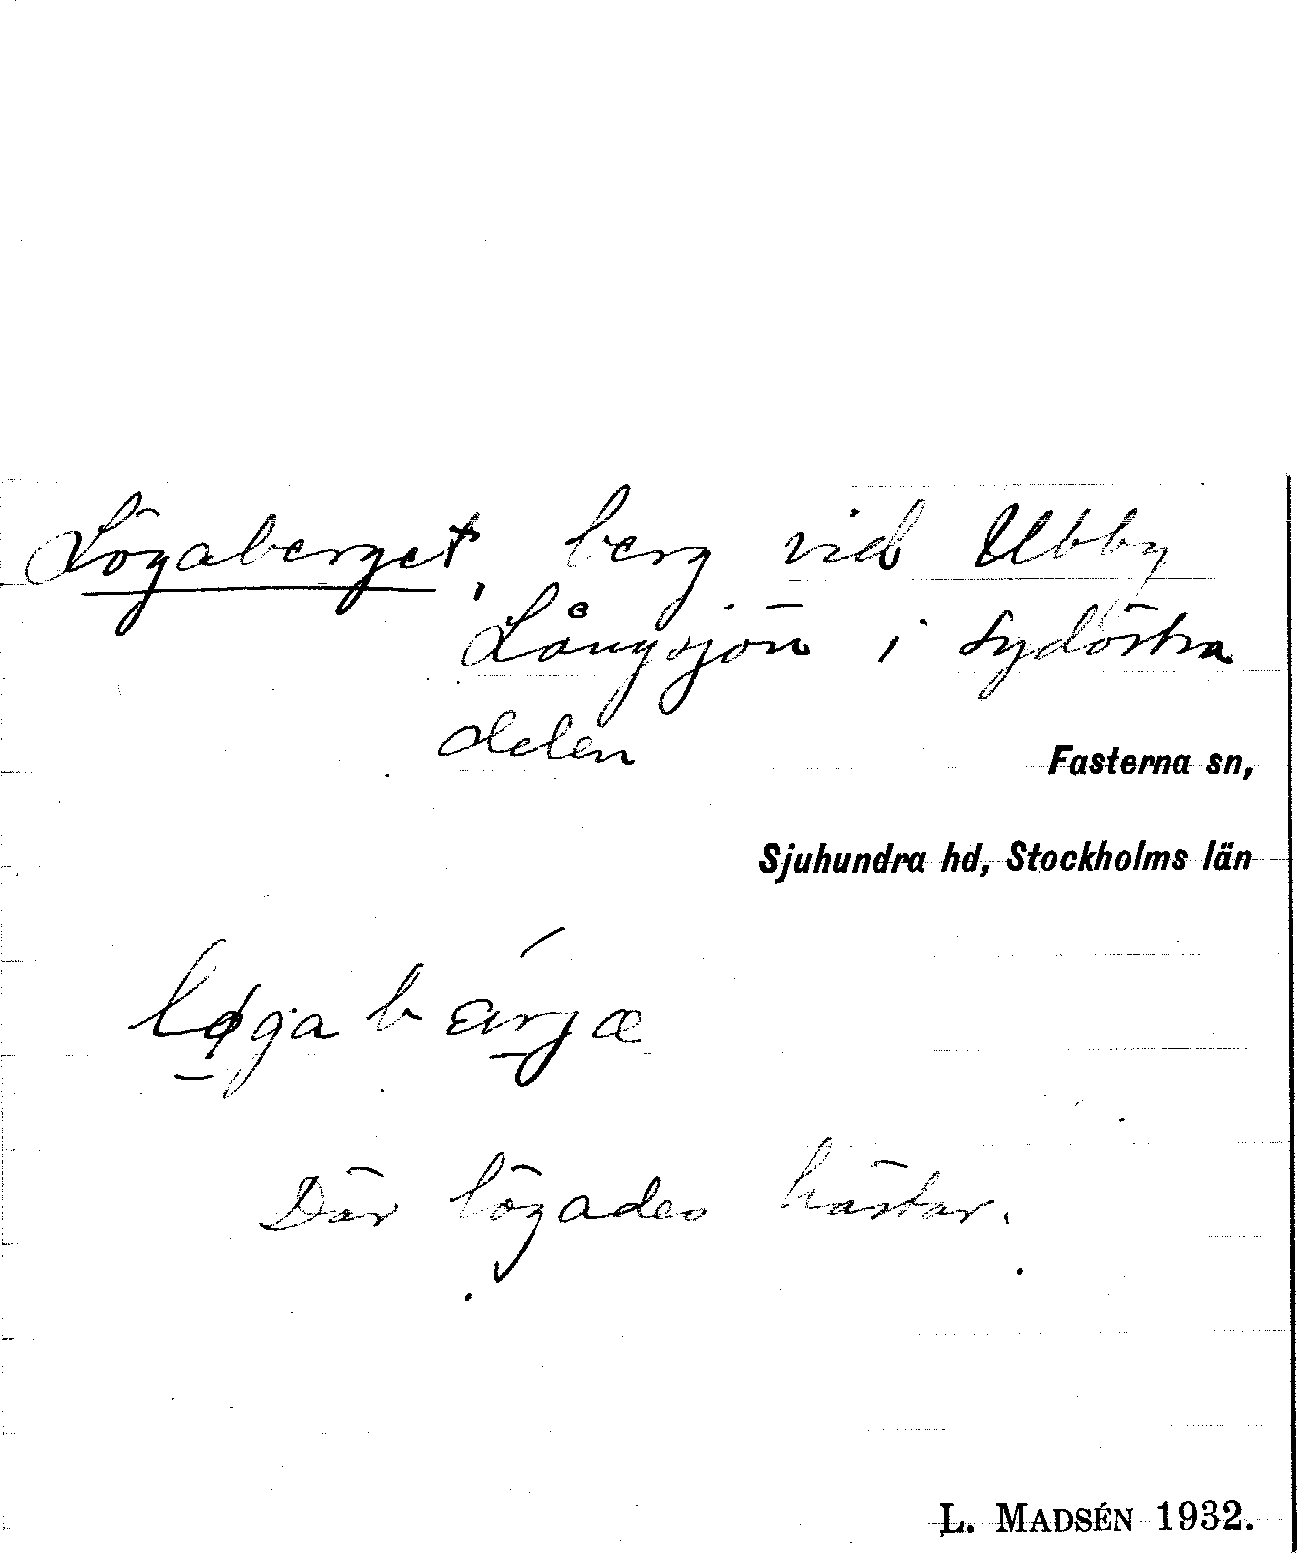 Lögaberget, berg vid Ubby
Långsjön i sydöstra
delen
Fasterna sn,
Sjuhundra hd, Stockholms län
løgabärjæ
Där lögades hästar.
L. MADSÉN 1932.